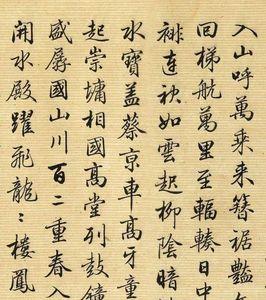 入山呼萬乘来簪裾艷
回梯航萬里至輻輳日中
裶連袂如雲起柳陰暗
水寶盖蔡京車高牙童
起崇墉相國高堂列鼓鐘
盛孱國山川百二重春入
開水殿躍飛龍〻樓鳳